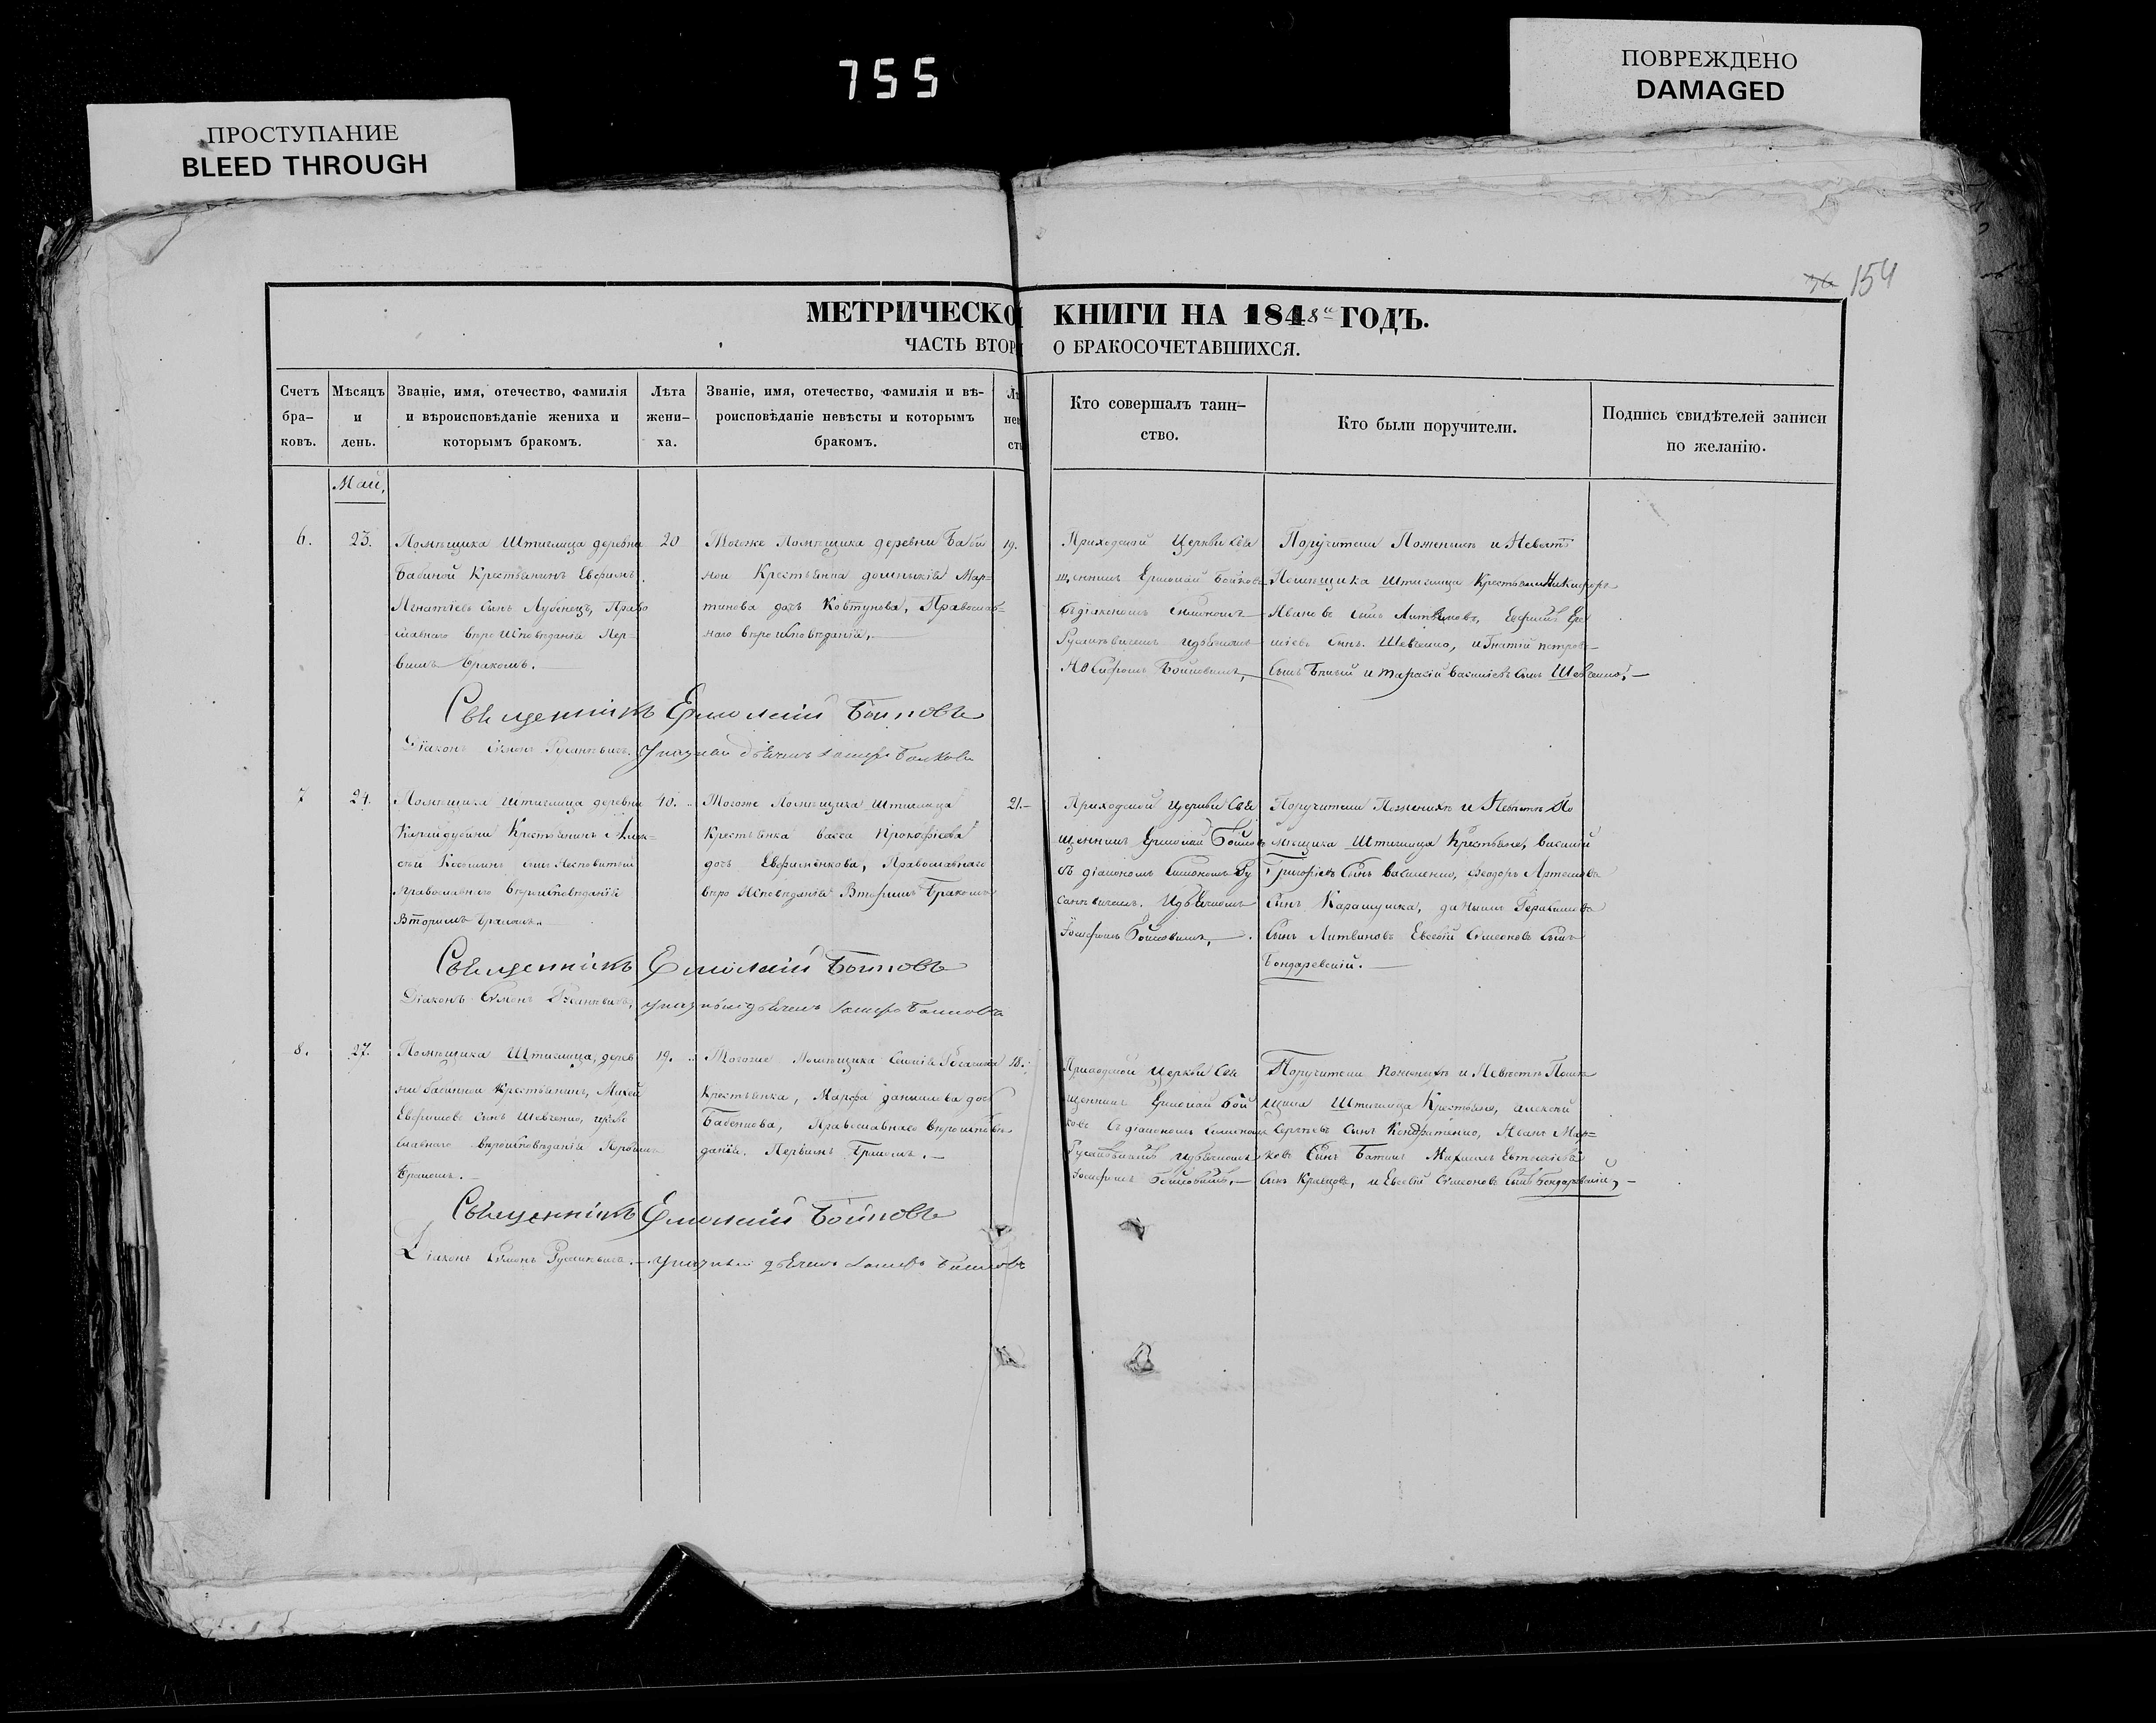 755
ПРОСТУПАНИЕ
BLEED THROUGH
ПОВРЕЖДЕНО
DAMAGED
154
МЕТРИЧЕСКО КНИГИ НА 1848 ГОДЪ.
ЧАСТЬ ВТОР О БРАКОСОЧЕТАВШИХСЯ.
Счетъ
бра-
ковъ.
Мѣсяцъ
и
день.
Званіе, имя, отечество, фамилія
и вѣроисповѣданіе жениха и
которымъ бракомъ.
Лѣта
жени-
ха.
Званіе, имя, отечество, фамилія и вѣ-
роисповѣданіе невѣсты и которымъ
бракомъ.
Кто совершалъ таин-
ство.
Кто были поручители.
Подпись свидѣтелей записи
по желанію.
Маи,
6.
23.
Помѣщика Штиглица деревни
Бабиной Крестьянинъ Евфимъ
Игнатіевъ сынъ Лубенецъ, Право
славнаго вѣроисповѣданія Пер-
вымъ бракомъ.
20
Тогоже Помѣщика деревни Баби
ной Крестьянка
Мар-
тинова дочь Ковтунова, Православ-
наго вѣроисповѣданія,
19.
Приходской Церкви Свя
щенникъ Ермолай Бойковъ
съ діакономъ Симономъ
Русанѣвичемъ и дьячкомъ
Іосифомъ Бойковымъ,
Поручители По женихѣ и Невѣстѣ
Помѣщика Штиглица Крестьяни Никифоръ
Ивановъ сынъ Литвиновъ, Евфимъ
сынъ Шевченко, Игнатій петровъ
сынъ Бѣлый и Тарасій Василіевъ сынъ Шевченко,
Священникъ Ермолаій Боиковъ
Діаконъ Сѵмонъ Русанѣвичъ. Указный дьячекъ Іосифъ Боиковъ
7
24.
Помѣщика Штиглица деревни
Крестьянинъ Алек-
сѣй
сынъ
православнаго вѣроисповѣданія
Вторымъ бракомъ.
40.
Тогоже Помѣщика Штиглица
Крестьянка Васса Прокофіева
дочь Евфименкова, Православнаго
вѣроисповѣданія Вторымъ бракомъ
21.
Приходской Церкви Свя
щенникъ Ермолай Бойковъ
съ діакономъ Симономъ Ру
санѣвичемъ. И дьячкомъ
Іосифомъ Бойковымъ,
Поручители По женихѣ и Невѣстѣ По
мѣщика Штиглица Крестьяне, василій
Григоріевъ сынъ Василенко, Феодоръ Артемовъ
сынъ Карамушка, данило Герасимовъ
сынъ Литвиновъ Евсевій Сѵмеоновъ сынъ
Бондаревскій.
Священникъ Ермолаій Боиковъ
Діаконъ Сѵмонъ Русанѣвичъ, указный дьячекъ Іосифъ Боиковъ
8.
27.
Помѣщика Штиглица, дерев
ни бабинной крестьянинъ, Михей
Евфимовъ сынъ Шевченко, право
славнаго вѣроисповѣданія Первымъ
бракомъ.
19.
Тогоже Помѣщика
Крестьянка, Марфа данилова дочь
Бабенкова, Православнаго вѣроисповѣ
данія. Первымъ Бракомъ.
18.
Приходской Церкви Свя
щенникъ Ермолай Бой
ковъ съ діакономъ Симономъ
Русанѣвичемъ и дьячкомъ
Іосифомъ Бойковымъ,
Поручители по женихѣ и Невѣстѣ Помѣ
щика Штиглица Крестьяне, алексей
Сергѣевъ сынъ Кондратенко, Иванъ Мар-
ковъ сынъ
Михаилъ Евтихіевъ
сынъ Кравцовъ, и Евсевій Сѵмеоновъ сынъ Бондаревскій,
Священникъ Ермолаій Боиковъ
Діаконъ Сѵмонъ Русанѣвичъ. указный дьячекъ Іосифъ Боиковъ